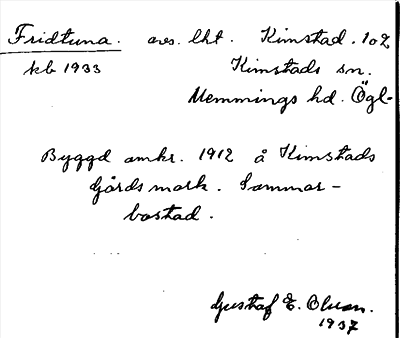 Fridtuna. avs. lht. Kimstad. 1o2
kb 1933 Kimstads sn.
Memmings hd. Ögl-
Byggd omkr. 1912 å Kimstads
Gårds mark. Sommar-
bostad.
Gustaf E. Olsson.
1937